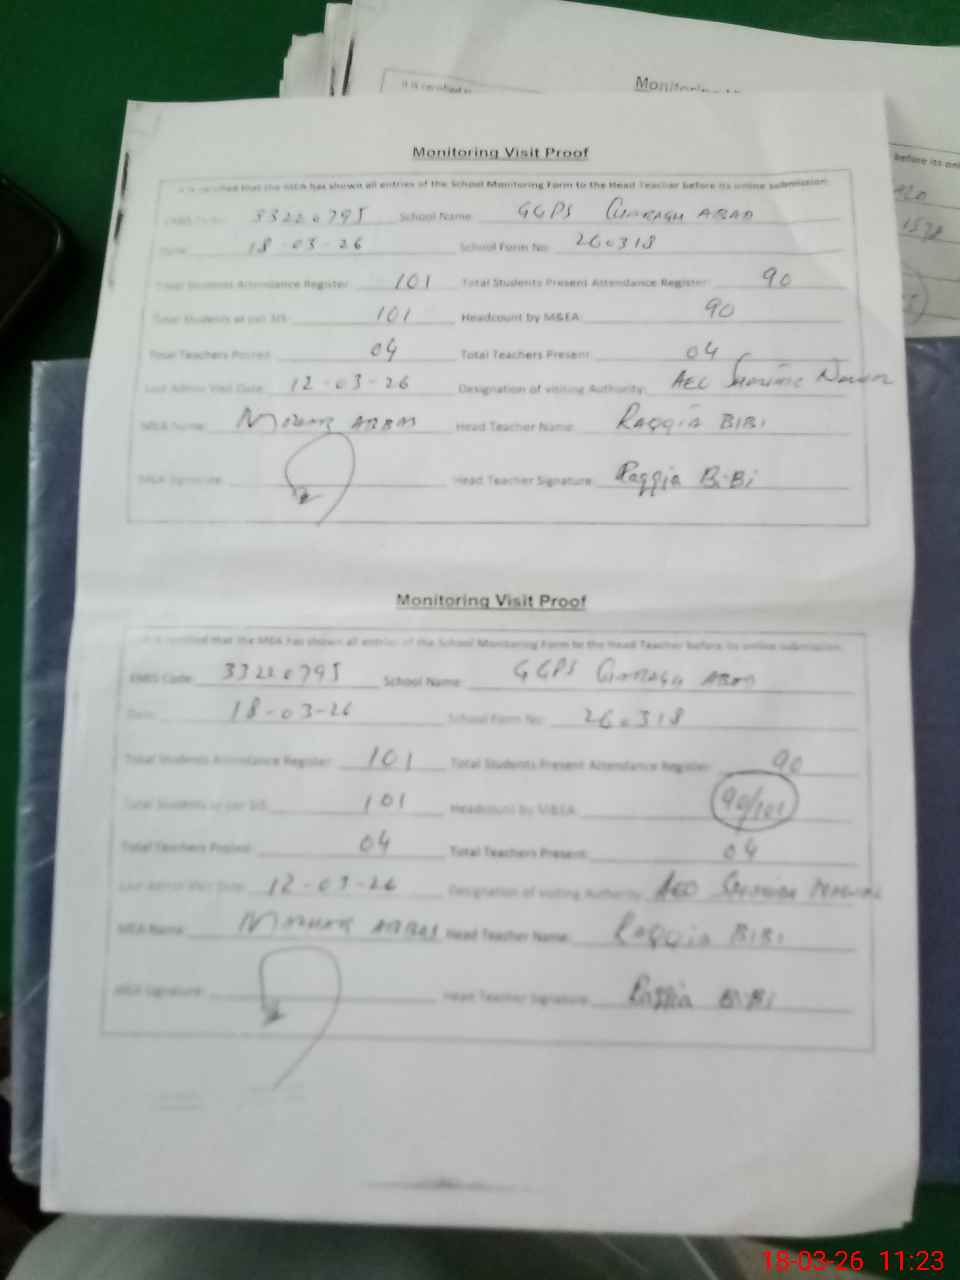 It is certified
Monitoring
before its onl
Monitoring Visit Proof
It is certified that the MEA has shown all entries of the School Monitoring Form to the Head Teacher before its online submission.
EMIS Code: 33220795 School Name: GGPS Charagh Abad
Date: 18-03-26 School Form No: 260318
Total Students Attendance Register: 101 Total Students Present Attendance Register: 90
Total Students as per SIS: 101 Headcount by M&EA: 90
Total Teachers Posted: 04 Total Teachers Present: 04
Last Admin Visit Date: 12-03-26 Designation of visiting Authority: AEO
MEA Name: Head Teacher Name: Raqqia BiBi
MEA Signature: Head Teacher Signature: Raqqia BiBi
Monitoring Visit Proof
It is certified that the MEA has shown all entries of the School Monitoring Form to the Head Teacher before its online submission.
EMIS Code: 33220795 School Name: GGPS Charagh Abad
Date: 18-03-26 School Form No: 260318
Total Students Attendance Register: 101 Total Students Present Attendance Register: 90
Total Students as per SIS: 101 Headcount by M&EA: 90/101
Total Teachers Posted: 04 Total Teachers Present: 04
Last Admin Visit Date: 12-03-26 Designation of visiting Authority: AEO
MEA Name: Head Teacher Name: Raqqia BiBi
MEA Signature: Head Teacher Signature: Raqqia BiBi
18-03-26 11:23